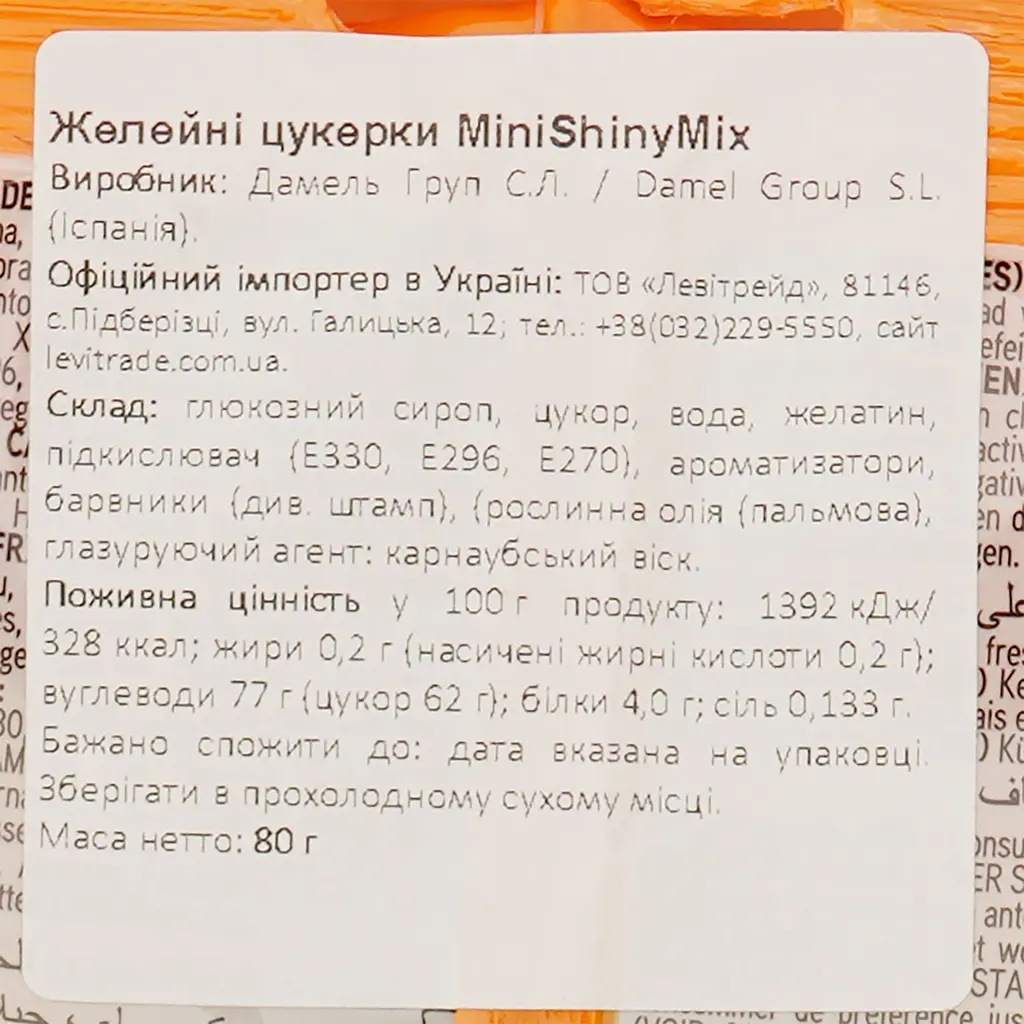 Желейні цукерки MiniShinyMix
Виробник: Дамель Груп С.Л. / Damel Group S.L.
(Іспанія).
Офіційний імпортер в Україні: ТОВ «Левітрейд», 81146,
с.Підберізці, вул. Галицька, 12; тел.: +38(032)229-5550, сайт
levitrade.com.ua.
Склад: глюкозний сироп, цукор, вода, желатин,
підкислювач (Е330, Е296, Е270), ароматизатори,
барвники (див. штамп), (рослинна олія (пальмова),
глазуруючий агент: карнаубський віск.
Поживна цінність у 100 г продукту: 1392 кДж/
328 ккал; жири 0,2 г (насичені жирні кислоти 0,2 г);
вуглеводи 77 г (цукор 62 г); білки 4,0 г; сіль 0,133 г.
Бажано спожити до: дата вказана на упаковці.
Зберігати в прохолодному сухому місці.
Маса нетто: 80 г